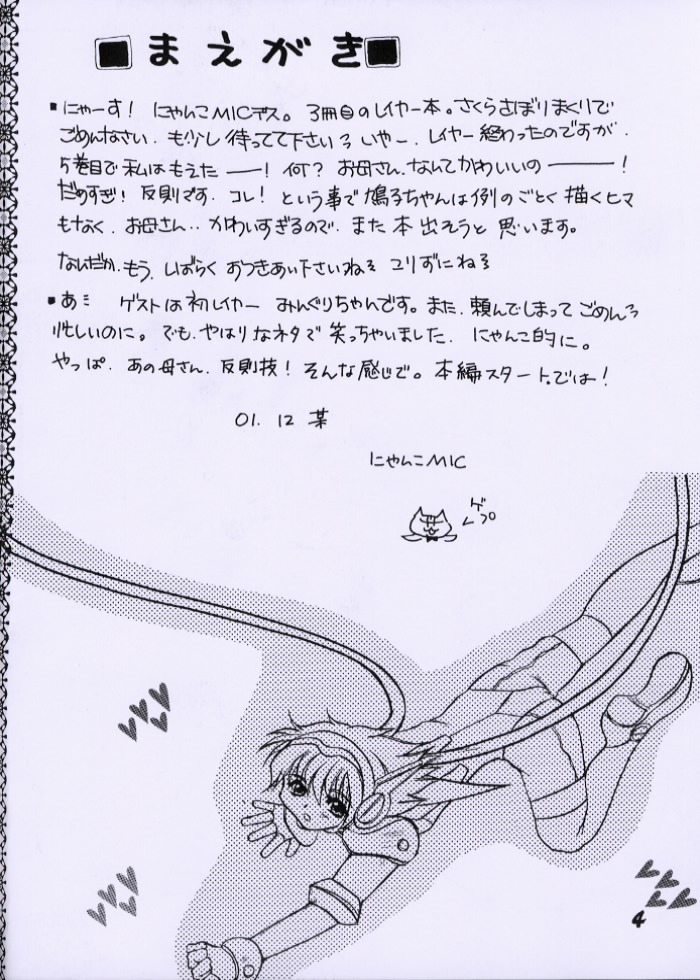 ■まえがき■
▪にゃーす! にゃんこMICデス。3冊目のレイヤー本。さくらさぼりまくりで
ごめんなさい. も少し待ってて下さいね いやー. レイヤー終わったのですが.
5巻目で私はもえたーー! 何? お母さん. なんてかわいいのーーー!
だめすぎ! 反則です. コレ! という事で鳩子ちゃんは例のごとく描くヒマ
もなく. お母さん‥かわいすぎるので. また本出そうと思います。
なんだか. もう. しばらくおつきあい下さいね こりずにね
▪あ ゲストは初レイヤーみんぐりちゃんです。また. 頼んでしまってごめんね
忙しいのに。でも. やはりなネタで笑っちゃいました. にゃんこ的に。
やっぱ. あの母さん. 反則技! そんな感じで。本編スタート. では!
01. 12 某
にゃんこMIC
ゲプ
4